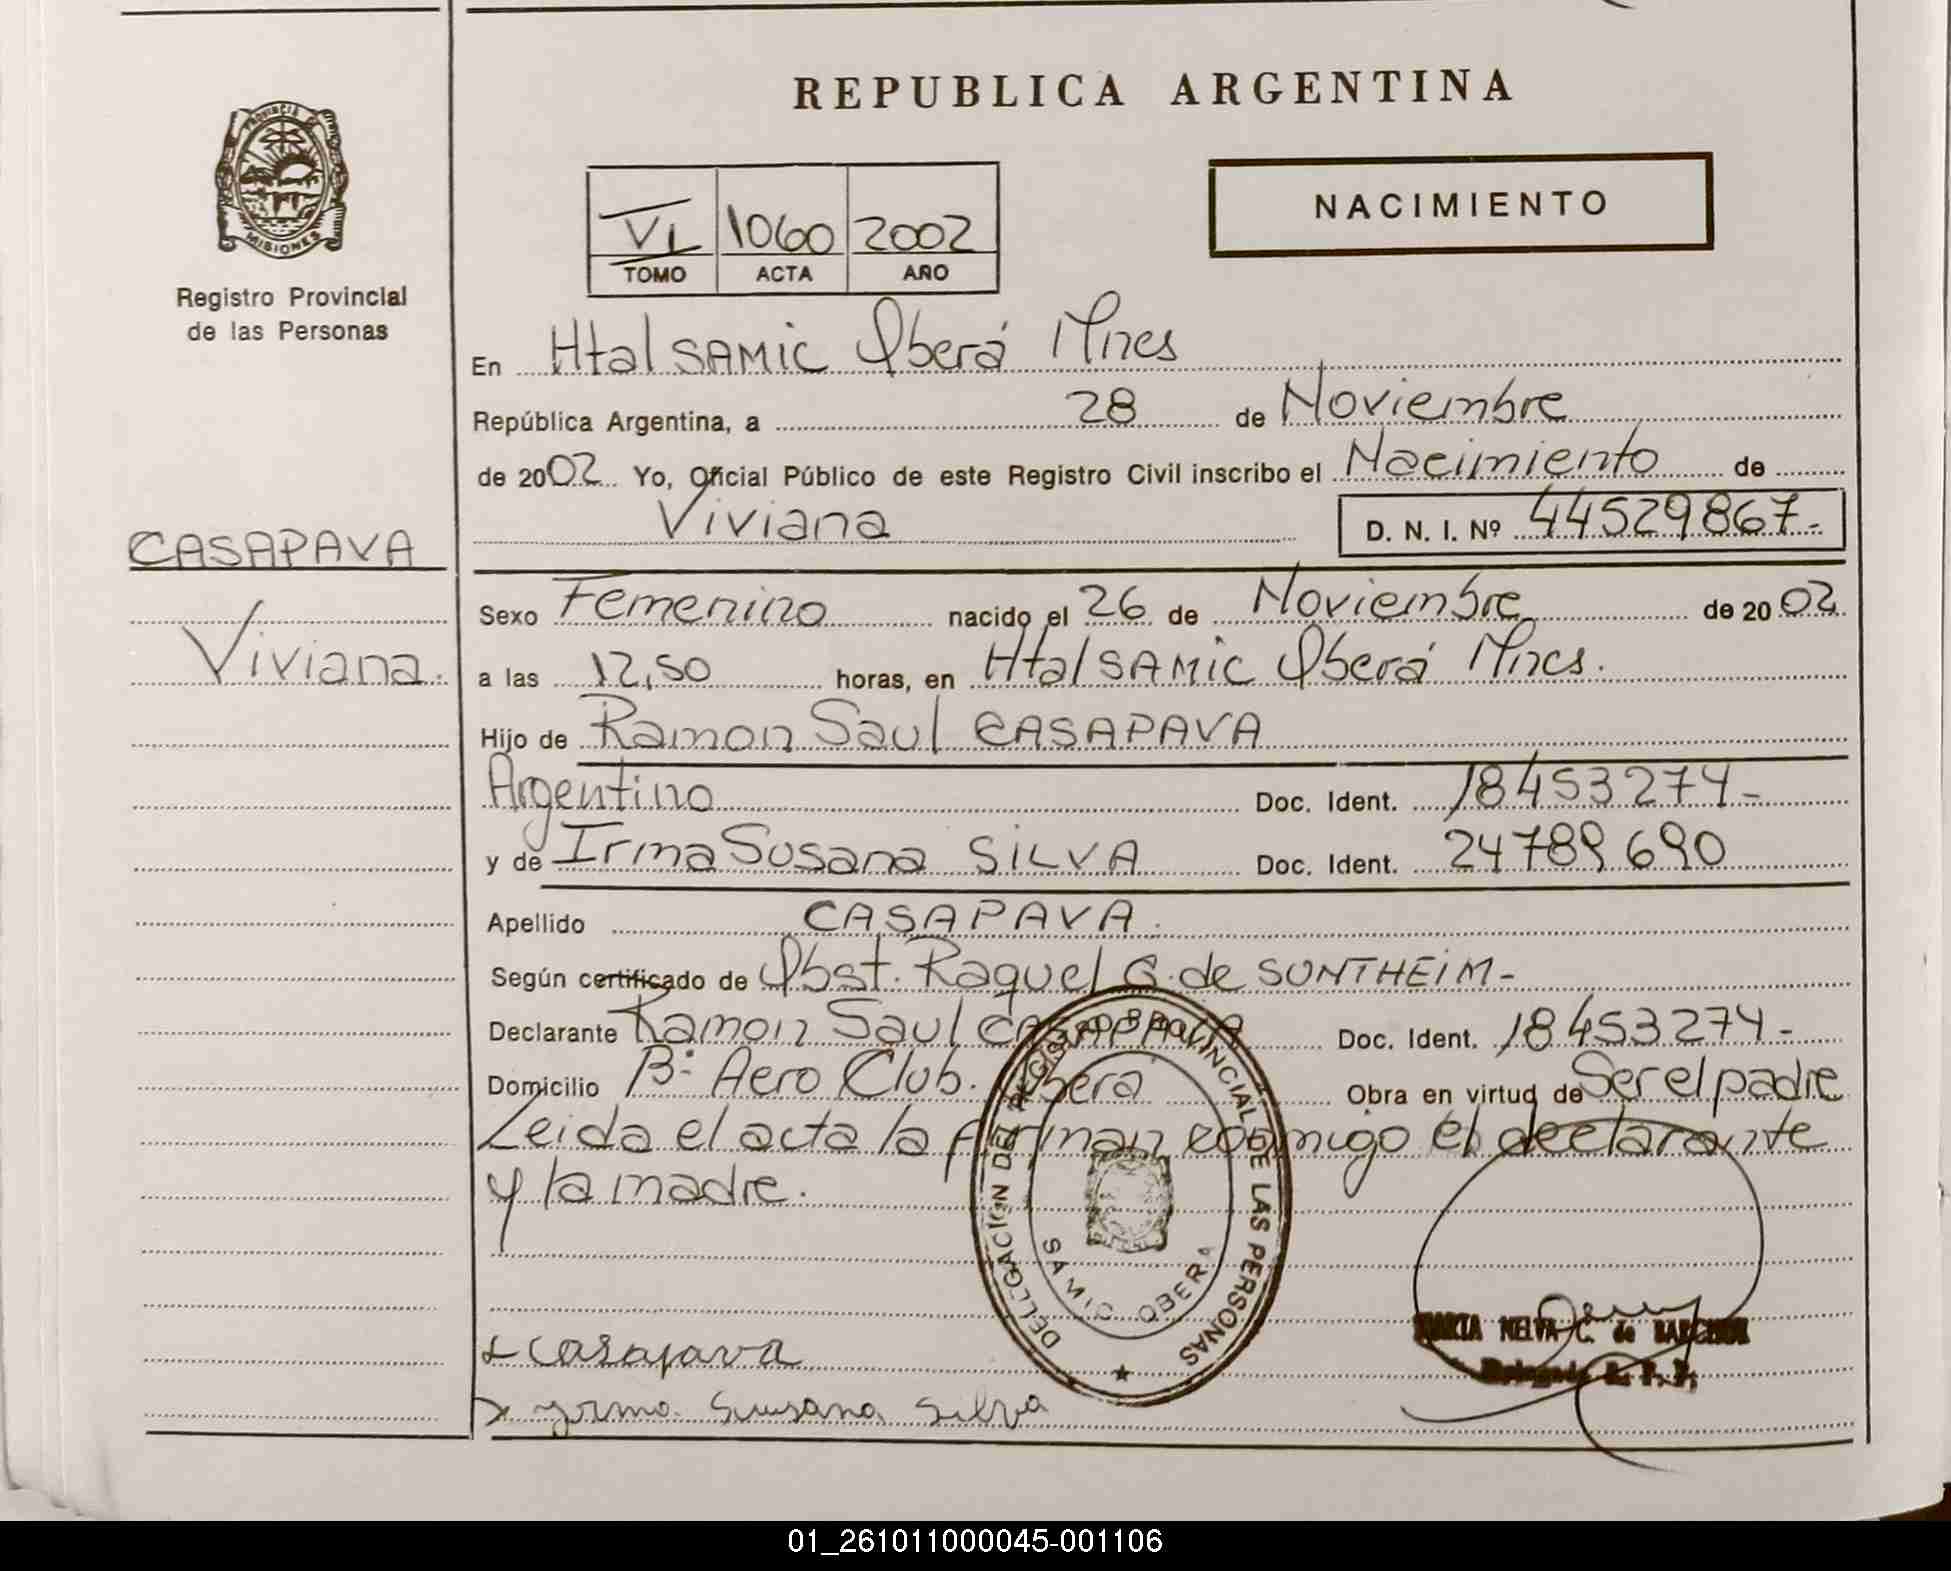 REPUBLICA ARGENTINA
PROVINCIA DE
MISIONES
Registro Provincial
de las Personas
VI 1060 2002
TOMO ACTA AÑO
NACIMIENTO
En Htal SAMIC Oberá Mnes
República Argentina, a 28 de Noviembre
de 2002 Yo, Oficial Público de este Registro Civil inscribo el Nacimiento de
Viviana D. N. I. Nº 44529867-
CASAPAVA
Viviana.
Sexo Femenino nacido el 26 de Noviembre de 2002
a las 12,50 horas, en Htal SAMIC Oberá Mnes.
Hijo de Ramon Saul CASAPAVA
Argentino Doc. Ident. 18453274-
y de Irma Susana SILVA Doc. Ident. 24789690
Apellido CASAPAVA.
Según certificado de Obst. Raquel G. de SONTHEIM-
Declarante Ramon Saul CASAPAVA Doc. Ident. 18453274-
Domicilio Bº Aero Club. Oberá Obra en virtud de Ser el padre
Leida el acta la firman conmigo el declarante
y la madre.
DELEGACION DEL REGISTRO PROVINCIAL DE LAS PERSONAS
SAMIC OBERA
x Casapava
x yrma Susana Silva
MARTA NELVA C. de
Delegada R. P. P.
01_261011000045-001106